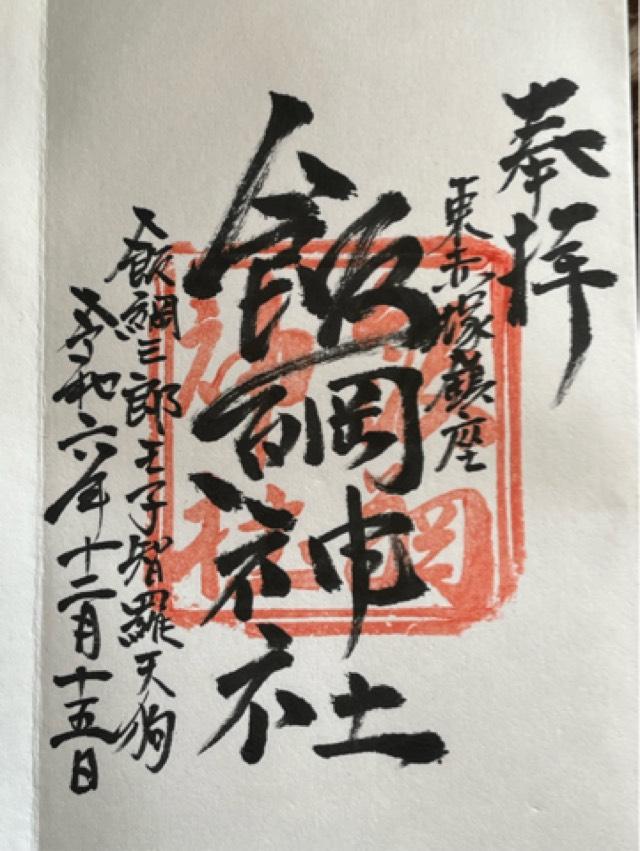 奉拝
東赤塚鎮座
飯綱神社
飯綱三郎王子智羅天狗
令和六年十二月十五日
飯綱
神社